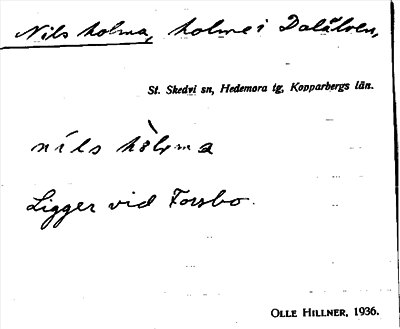 Nils holma, holme i Dalälven,
St. Skedvi sn, Hedemora tg, Kopparbergs län.
nils hòlma
Ligger vid Forsbo.
OLLE HILLNER, 1936.